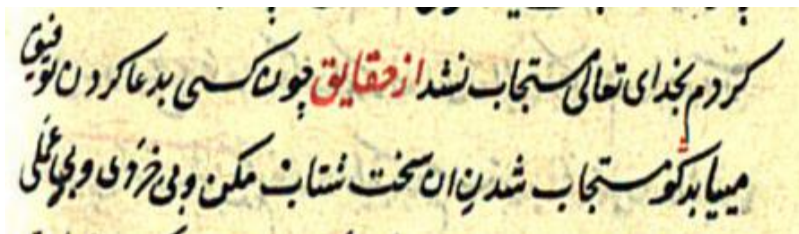 کردم بخدای تعالی مستجاب نشد از حقایق چون کسی بدعا کردن توفیق
مییابد کو مستجاب شدن ان سخت شتاب مکن و بی خردی و بی عقلی